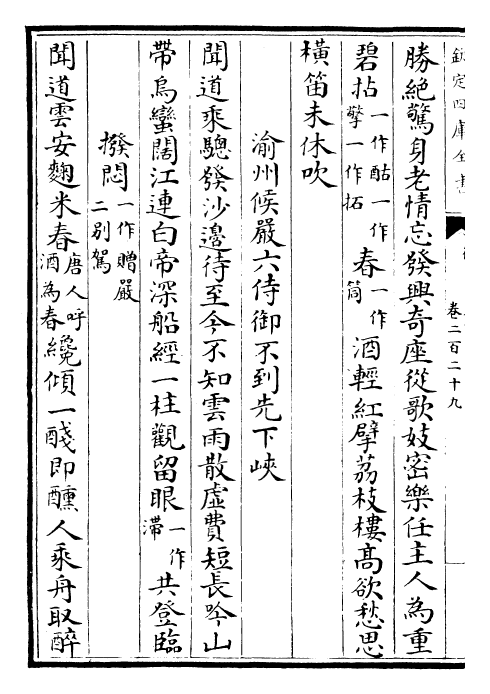 欽定四庫全書
卷二百二十九
勝絶驚身老情忘發興奇座從歌妓密樂任主人為重
碧拈一作酤一作擎一作拓春一作筒酒輕紅擘荔枝樓髙欲愁思
橫笛未休吹
渝州候嚴六侍御不到先下峽
聞道乘驄發沙邉待至今不知雲雨散虛費短長吟山
帶烏蠻闊江連白帝深船經一柱觀留眼一作滯共登臨
撥悶一作贈嚴二别駕
聞道雲安麴米春唐人呼酒為春纔傾一醆即醺人乘舟取醉